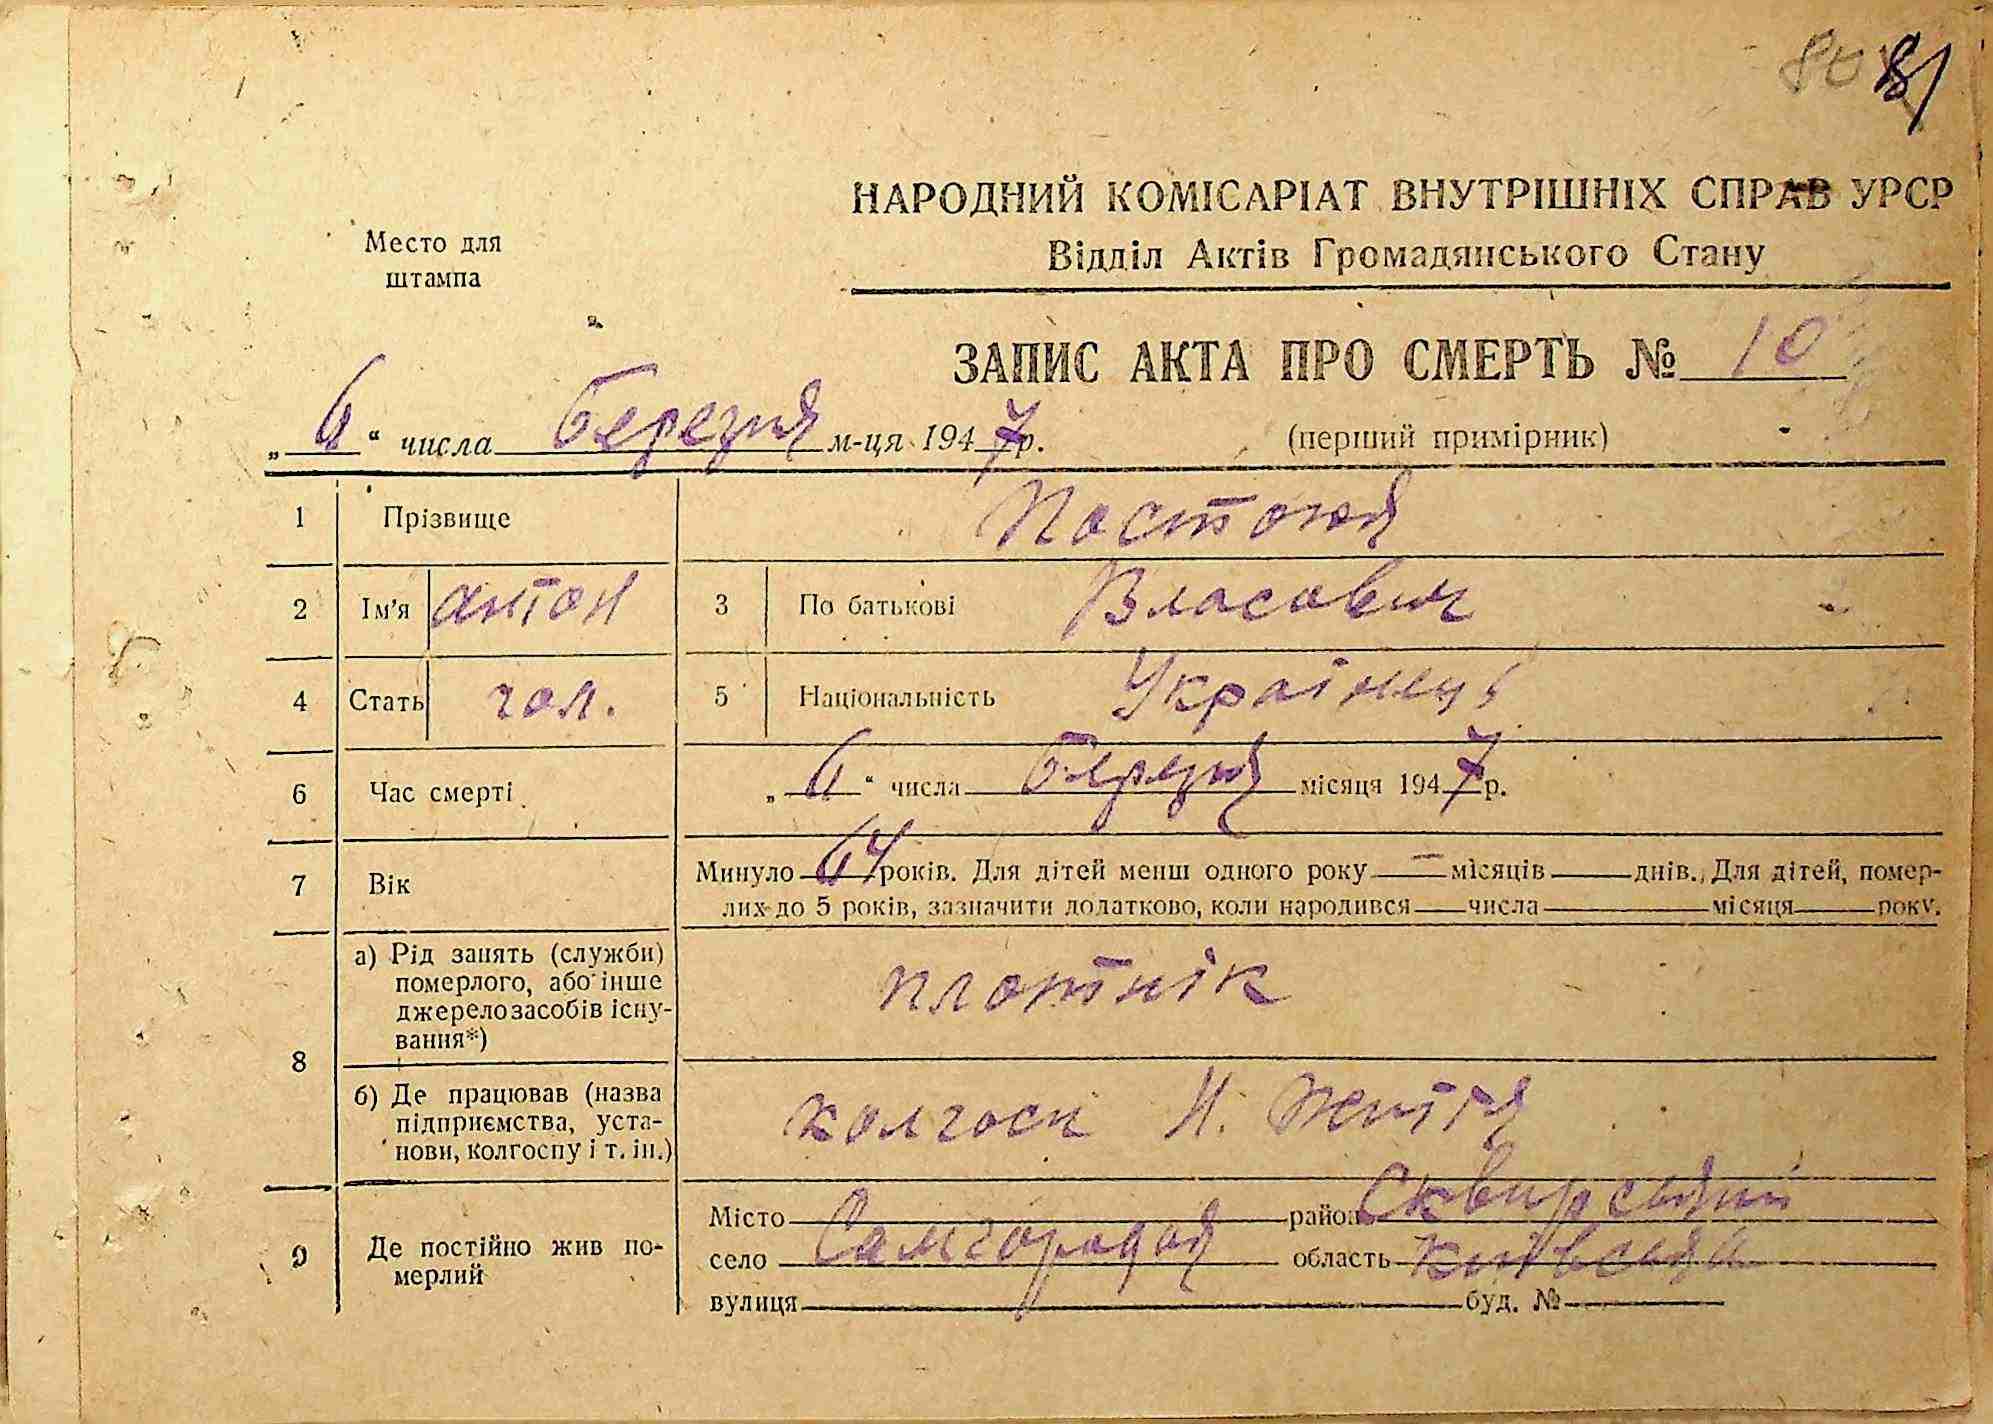 80 81
НАРОДНИЙ КОМІСАРІАТ ВНУТРІШНІХ СПРАВ УРСР
Відділ Актів Громадянського Стану
Место для
штампа
ЗАПИС АКТА ПРО СМЕРТЬ № 10
„6“ числа березня м-ця 1947 р.
(перший примірник)
1 Прізвище
2 Ім'я антон 3 По батькові Власович
4 Стать чол. 5 Національність Українець
6 Час смерті „6“ числа березня місяця 1947 р.
7 Вік Минуло 64 років. Для дітей менш одного року — місяців днів. Для дітей, помер-
лих до 5 років, зазначити додатково, коли народився числа місяця року.
8 а) Рід занять (служби)
померлого, або інше
джерело засобів існу-
вання*)
плотнік
б) Де працював (назва
підприємства, уста-
нови, колгоспу і т. ін.)
колгосп Н. Життя
9 Де постійно жив по-
мерлий
Місто район Сквирський
село Самгородок область Київська
вулиця буд. №